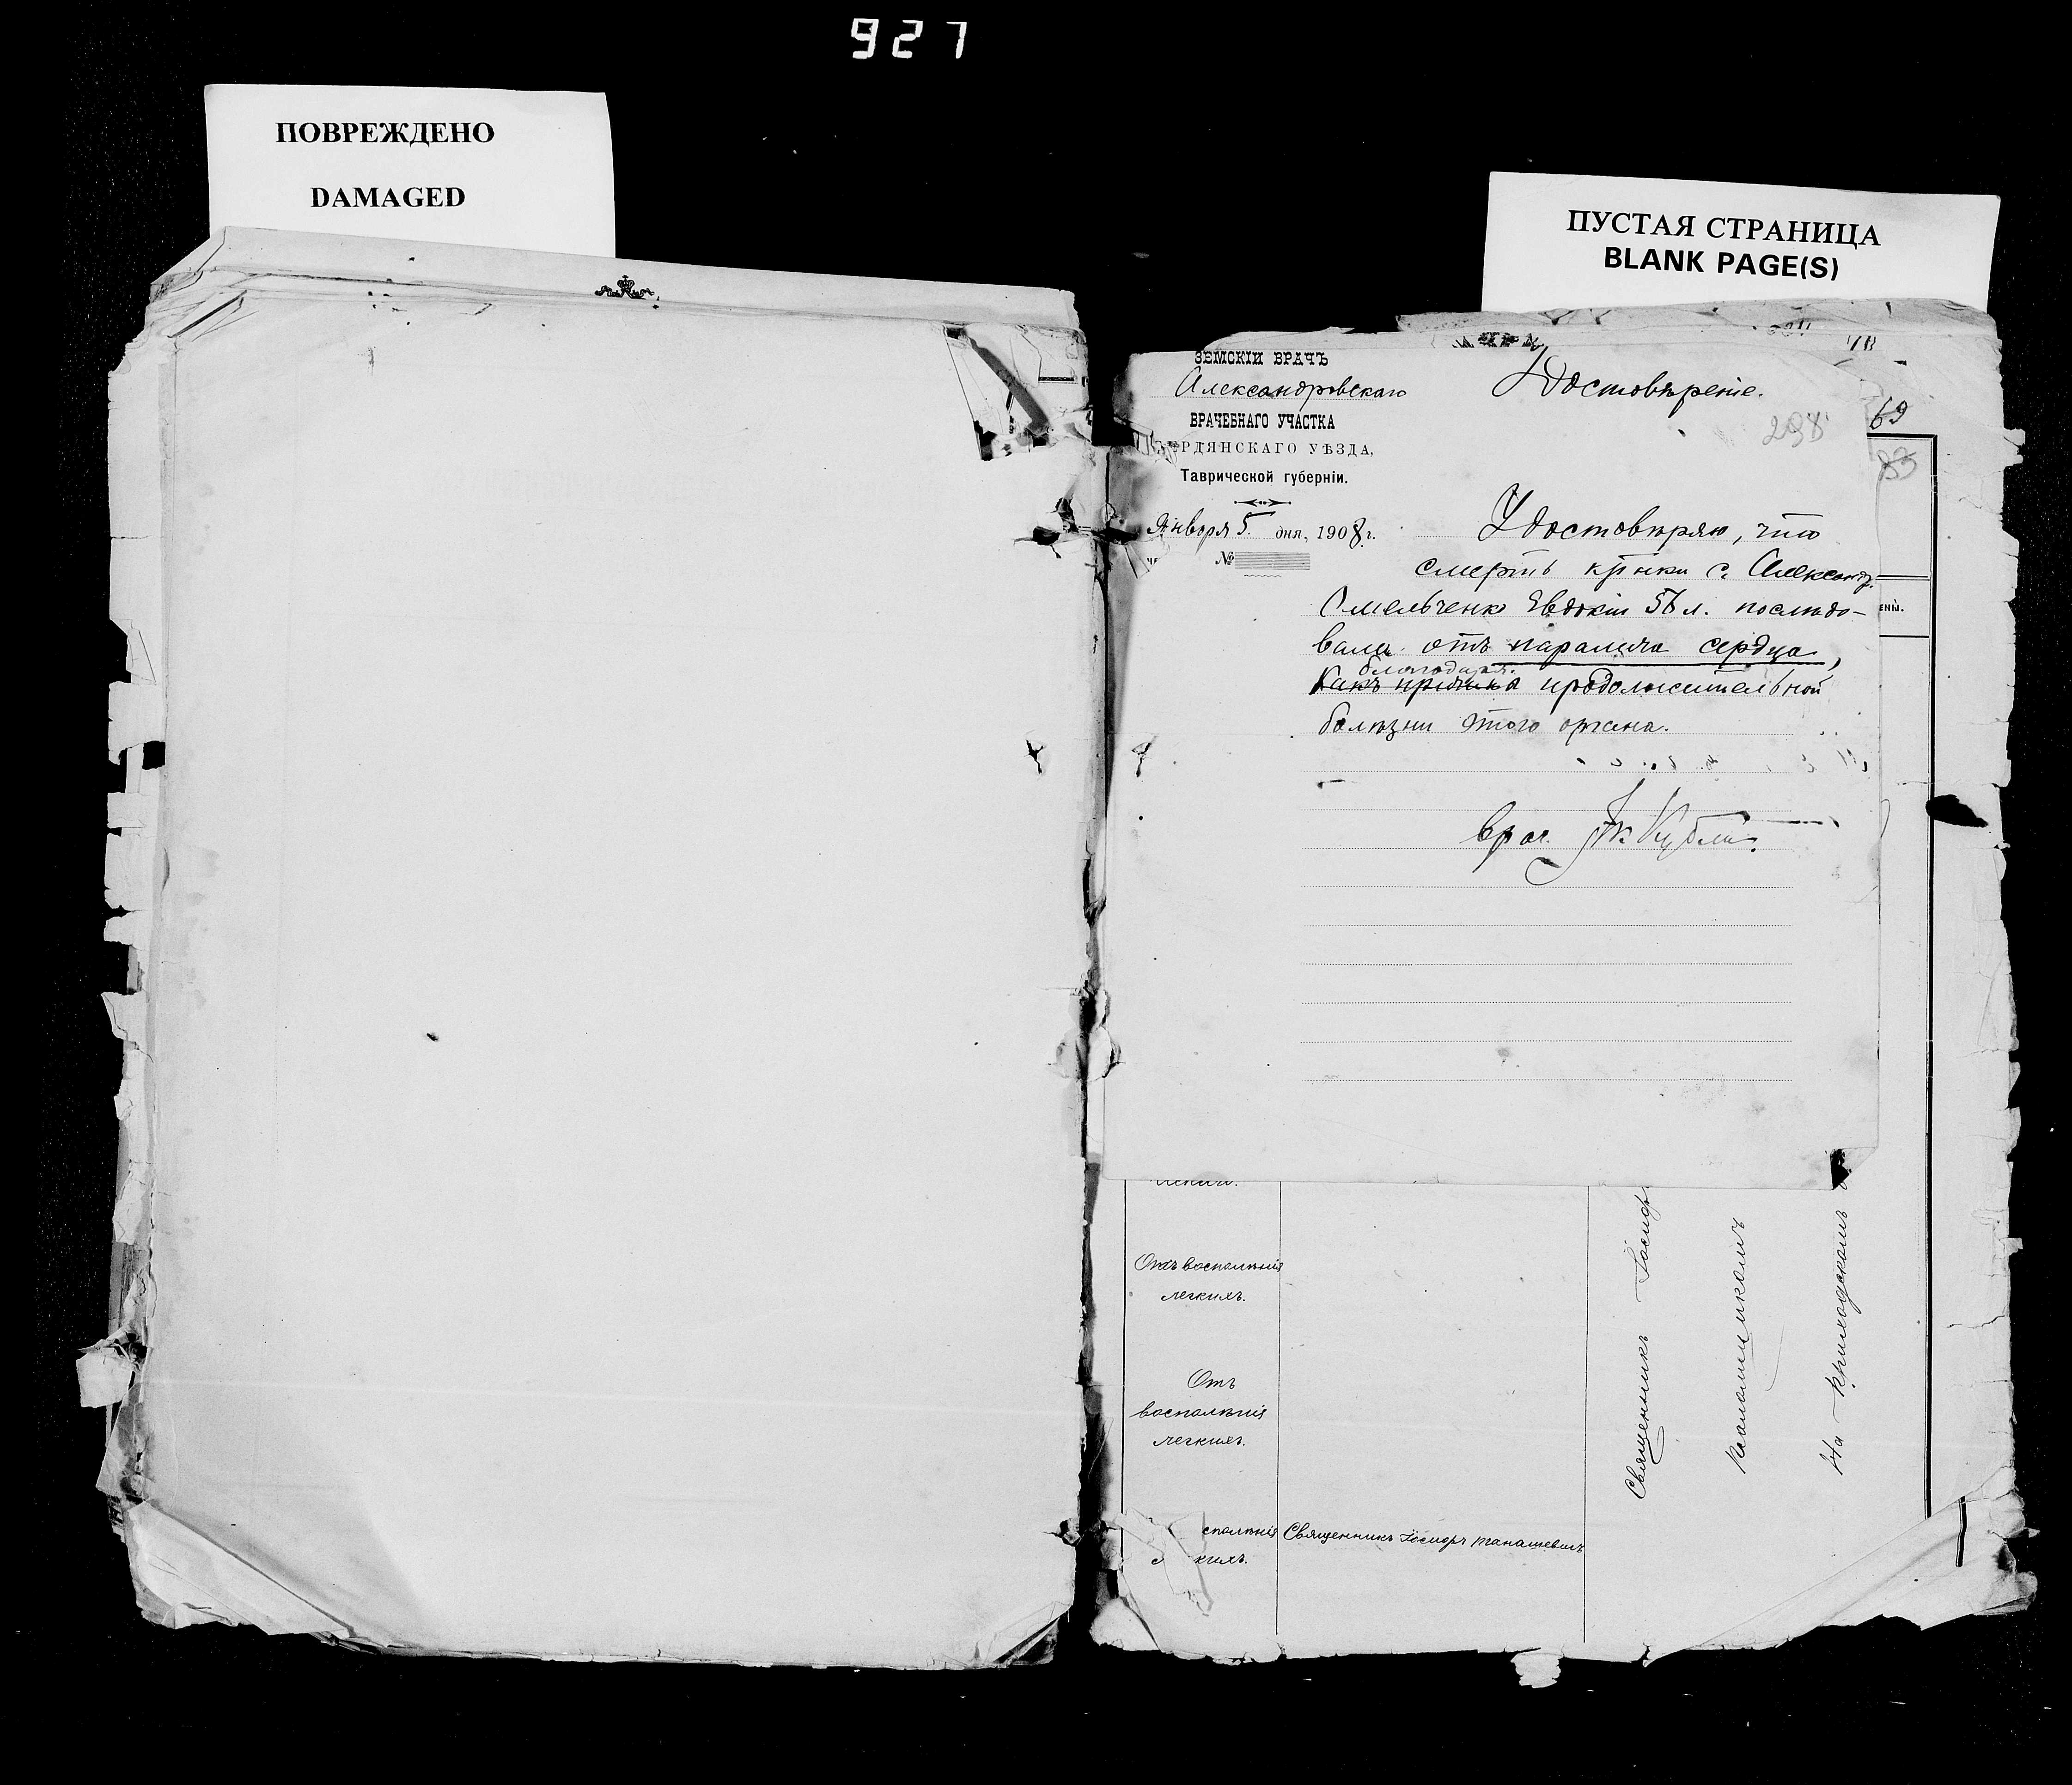 927
ПОВРЕЖДЕНО
DAMAGED
ПУСТАЯ СТРАНИЦА
BLANK PAGE(S)
ЗЕМСКІЙ ВРАЧЪ
Александровскаго
ВРАЧЕБНАГО УЧАСТКА
РДЯНСКАГО УѢЗДА,
Таврической губерніи.
Января 5 дня, 1908 г.
№
Удостовѣреніе.
298
69
83
Удостовѣряю, что
смерть кр-нки с. Александр.
Омельченко Евдокіи 56 л. послѣдо-
вала отъ паралича сердца,
благодаря
Какъ причина продолжительной
болѣзни этого органа.
Врач.
ены.
Отъ воспаленія
легкихъ.
Отъ
воспаленія
легкихъ.
спаленія
кихъ.
Священникъ Іосифъ
Священникъ Іосиф
Псаломщикомъ
На приходскомъ